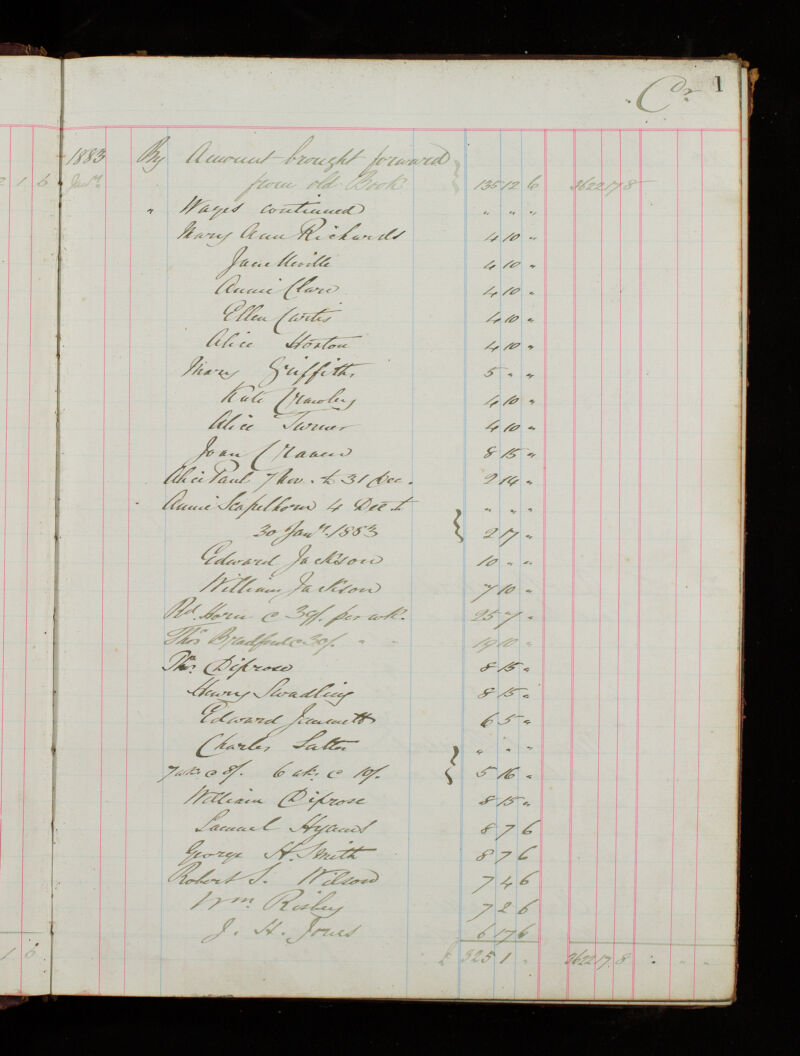 1
Cr.
1883 By Amount brought forward
2 1 6 Jany. from old Book } 135 12 6 3622 17 8
" Wages continued " " "
Mary Ann Richards 4 10 "
Jane Neville 4 10 "
Annie Clare 4 10 "
Ellen Curtis 4 10 "
Alice Horton 4 10 "
Mary Griffiths 5 " "
Kate Crawley 4 10 "
Alice Turner 4 10 "
Joan Craven 8 15 "
Alice Paul 7 Nov. to 31 Dec. 2 14 "
Annie Scapelhorn 4 Dec to " " "
30 Jany. 1883 } 2 7 "
Edward Jackson 10 " "
William Jackson 7 10 "
Rd. Horn @ 39/. per wk. 25 7 "
Thos Bradford @ 30/. " " 19 10 "
Thos. Diprose 8 15 "
Henry Swadling 8 15 "
Edward Jemmett 6 5 "
Charles " " "
7 wks. @ 8/. 6 wks. @ 10/. } 5 16 "
William Diprose 8 15 "
Samuel Hyams 8 7 6
George H. Smith 8 7 6
Robert S. Wilson 7 4 6
Wm. Risley 7 2 6
J. H. Jones 6 17 6
1 6 £ 325 1 " 3622 17 8 " " "